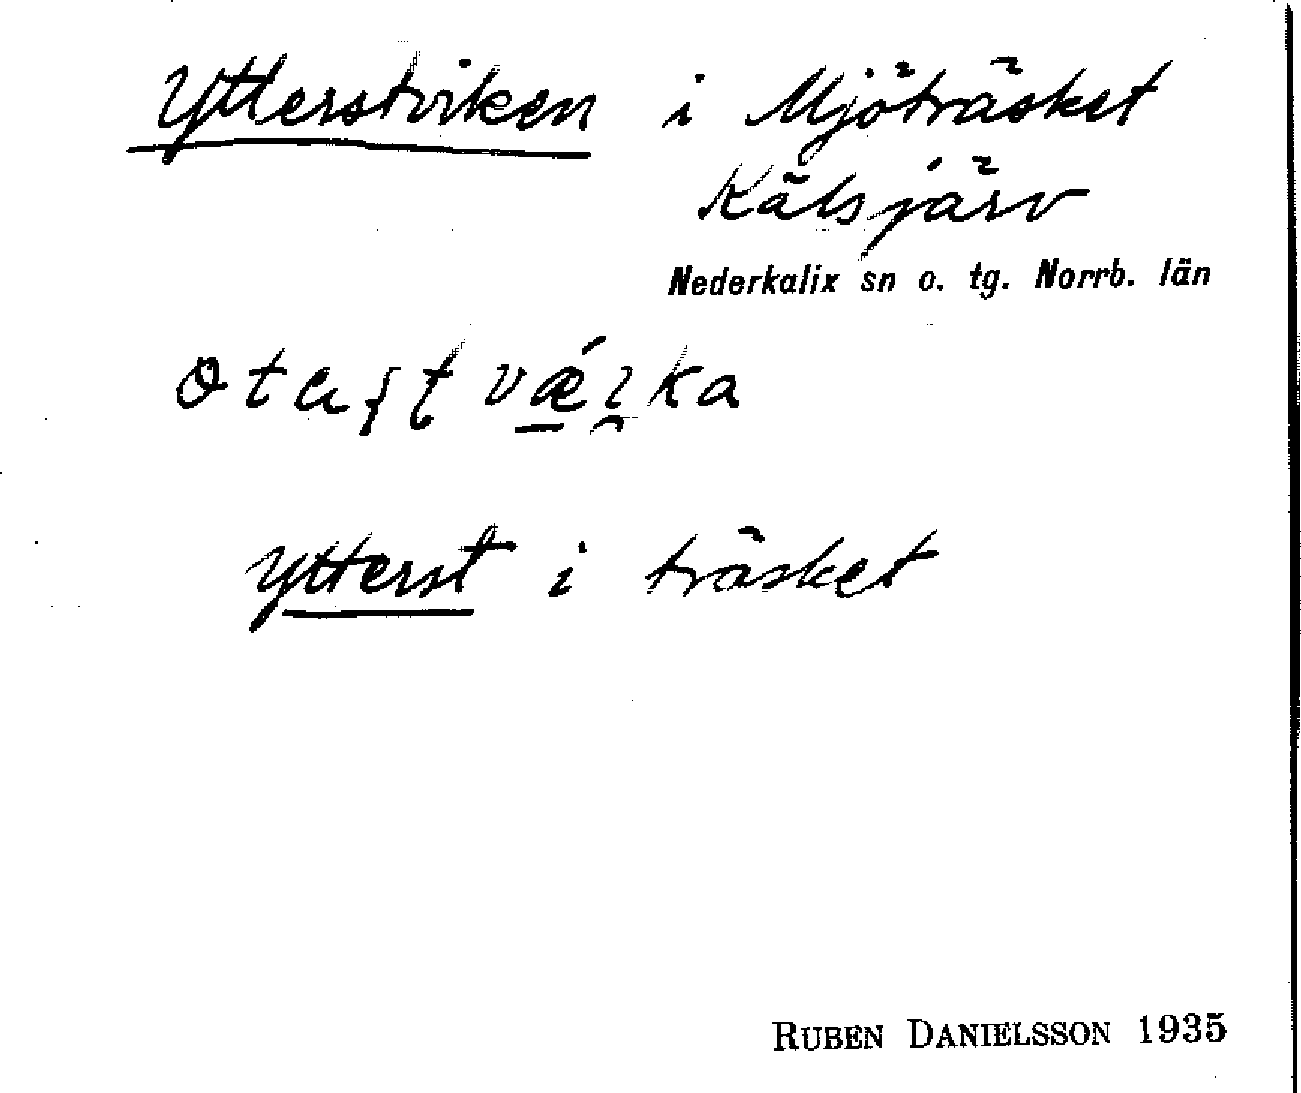 Ytterstviken i Mjöträsket
Kälsjärv
Nederkalix sn o. tg. Norrb. län
Ytterst i träsket
RUBEN DANIELSSON 1935